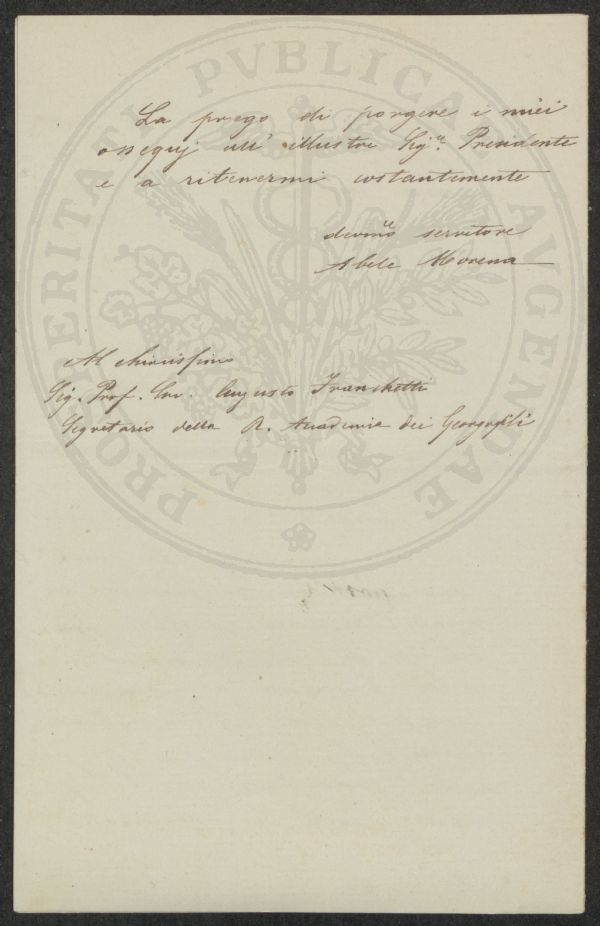 La prego di porgere i miei
ossequj all' illustre Sigr. Presidente
e a ritenermi costantemente
devmo servitore
Abele Morena
Al chiarissimo
Sig. Prof. Cav. Augusto Franchetti
Segretario della R. Accademia dei Georgofili
PROSPERITATI PVBLICAE AVGENDAE